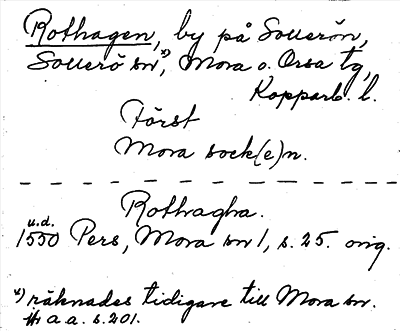 Rothagen, by på Sollerön,
Sollerö sn x), Mora o. Orsa tg,
Kopparb. l.
Först
Mora sock(e)n.
Rothagha.
u.d.
1550 Pers, Mora sn 1, s. 25. orig.
x) räknades tidigare till Mora sn.
a a. s. 201.